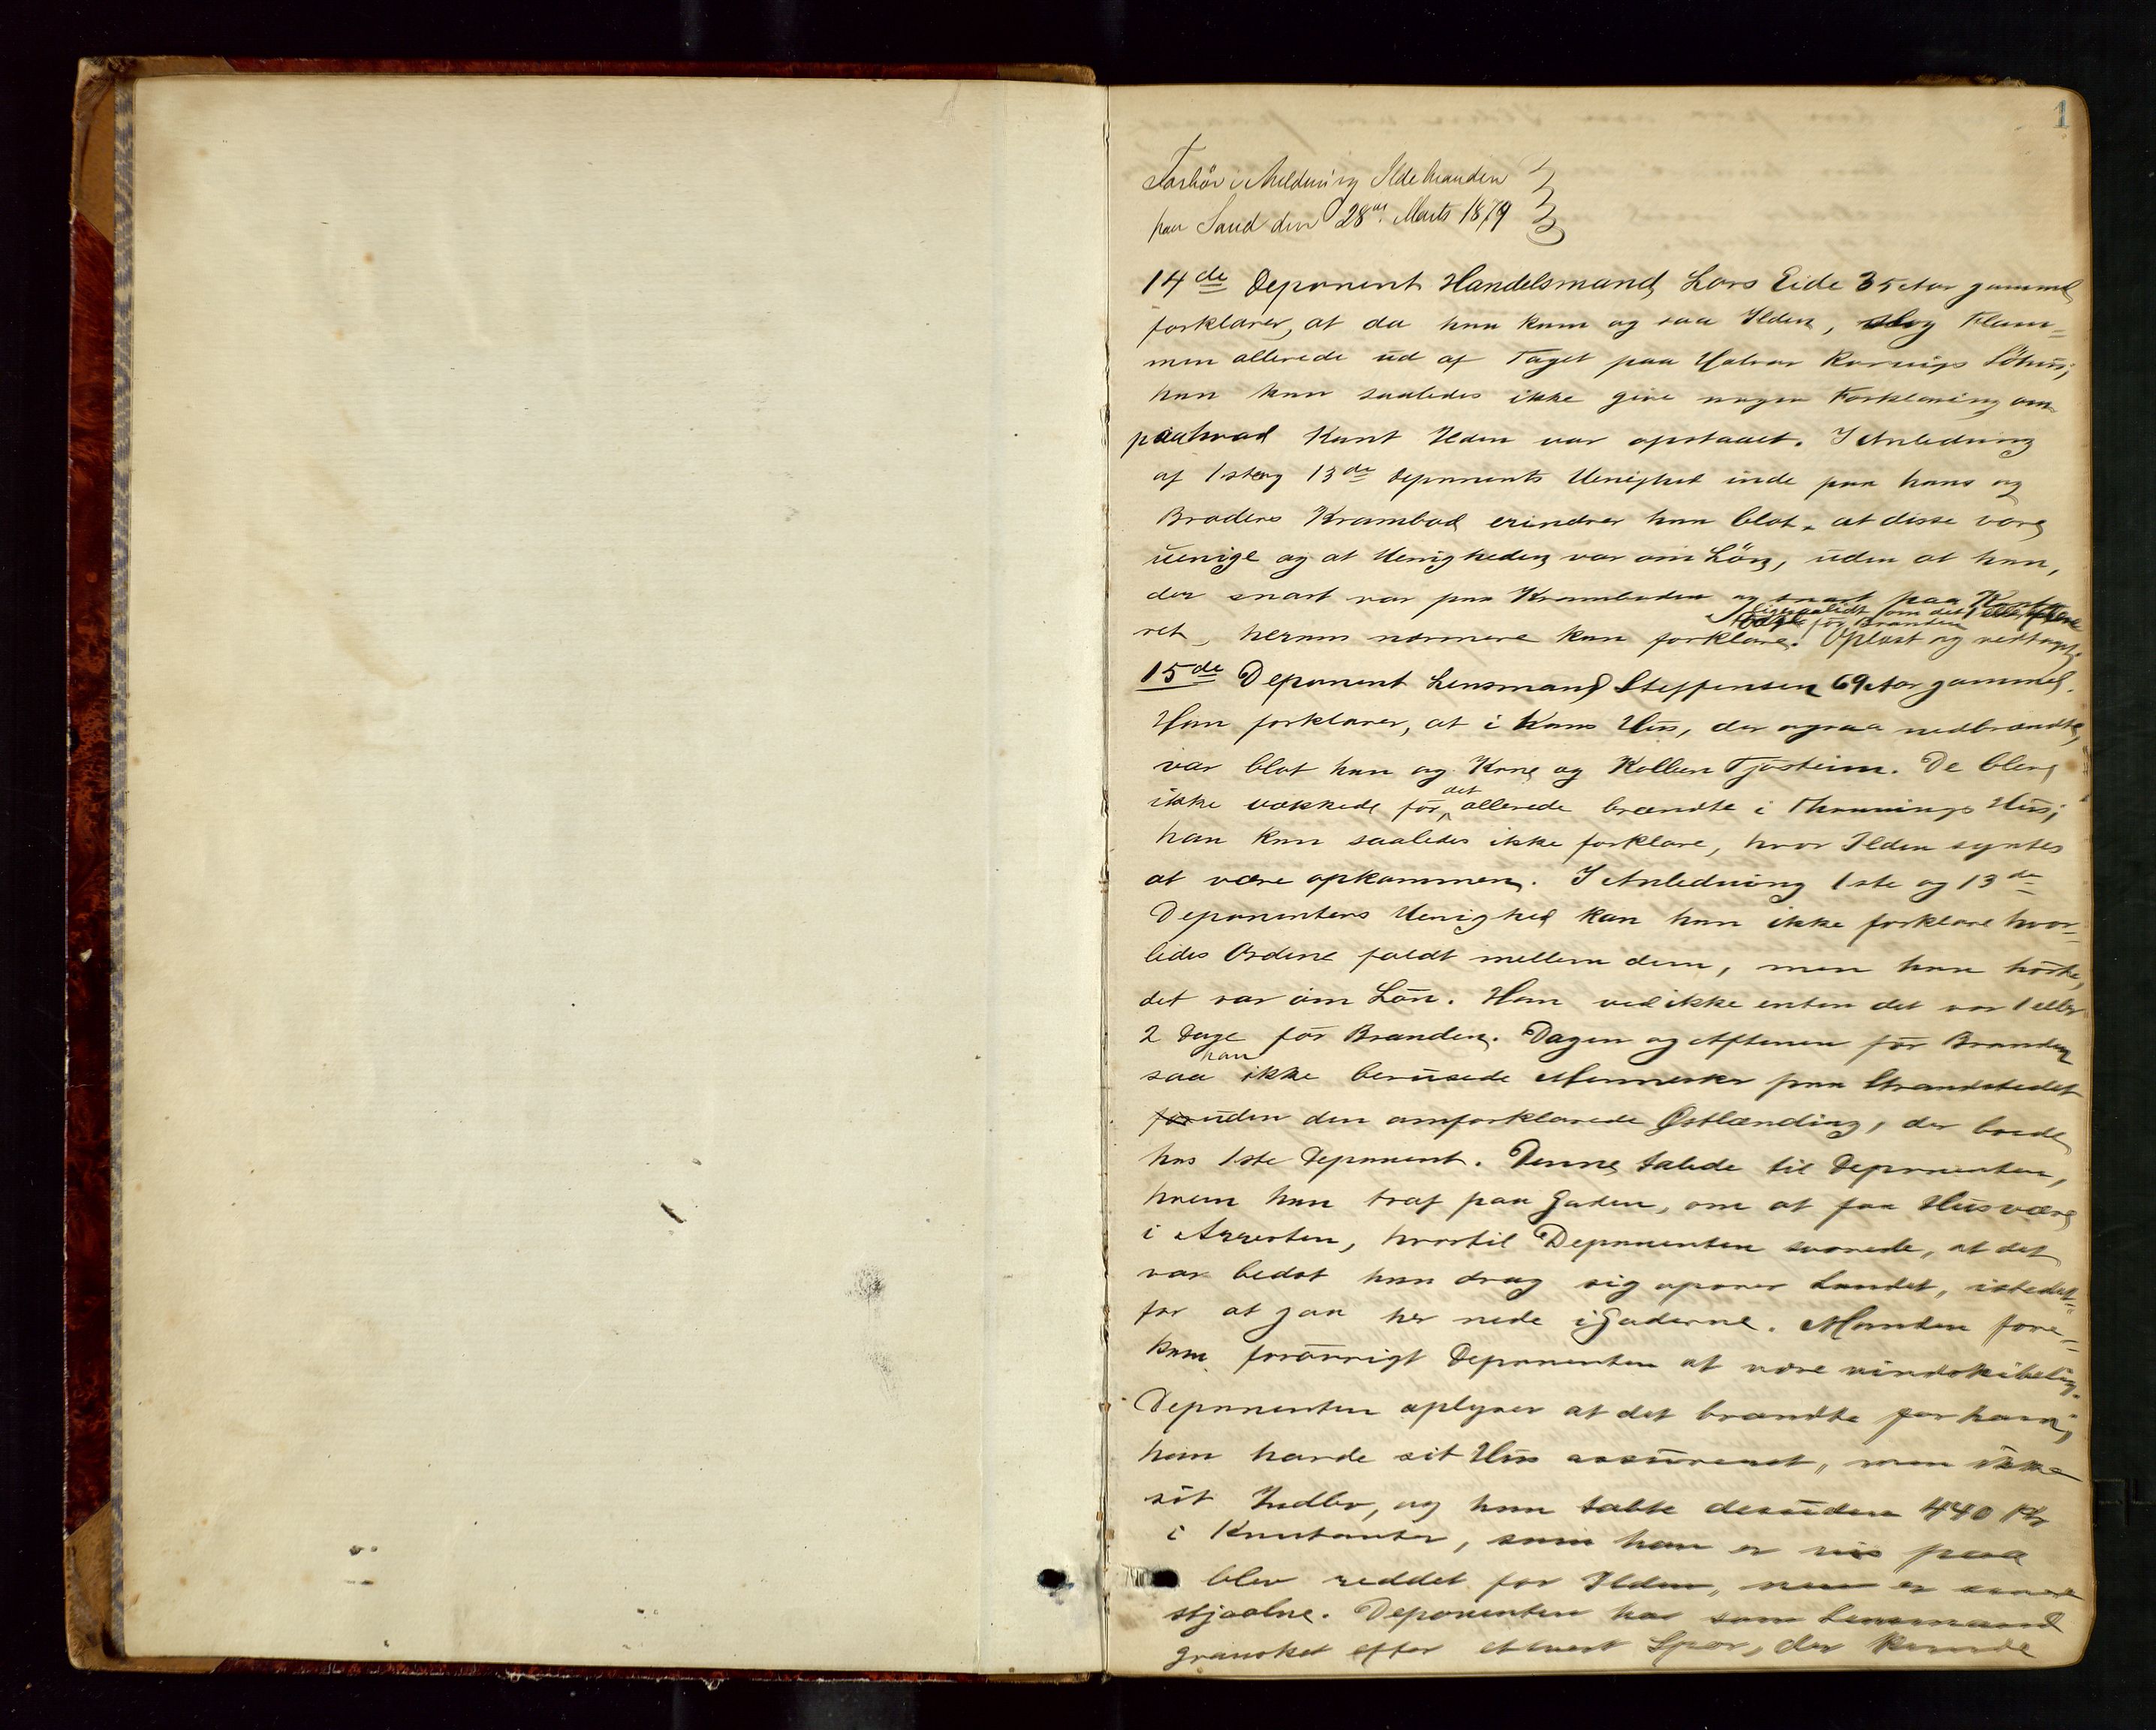 1
Forhör i Anledning Ildebranden
paa Sand den 28de Marts 1879
14de Deponent Handelsmand Lars Eide 35 Aar gammel
forklarer, at da han kom og saa Ilden, slog Flam-
men allerede ud af Taget paa Halvor Söhus;
han kan saaledes ikke give nogen Forklaring om
paa hvad Kant Ilden var opstaaet. I Anledning
af 1ste og 13de Deponents Uenighed inde paa hans og
Broders Krambod erindrer han blot, at disse vare
uenige og at Uenigheden var om Lön, uden at han,
der snart var paa Kramboden og snart paa Konto-
ligesaalidt om det 1 eller flere
Dage för Branden
ret, herom nærmere kan forklare. Oplæst og vedtaget.
15de Deponent Lensmand Steffensen 69 Aar gammel.
Han forklarer, at i hans Hus, der ogsaa nedbrændte,
var blot han og Kone og Kolbein Tjösteim. De bleve
ikke vækkede för det allerede brændte i Thannings Hus;
han kan saaledes ikke forklare, hvor Ilden syntes
at være opkommen. I Anledning 1ste og 13de
Deponenters Uenighed kan han ikke forklare hvor-
ledes Ordene faldt mellem dem, men han hörte,
det var om Lön. Han ved ikke enten det var 1 eller
2 Dage för Branden. Dagen og Aftenen för Branden
saa han ikke berusede Mennesker paa Strandstedet
foruden den omforklarede Østlænding, der boede
hos 1ste Deponent. Denne talede til Deponenten,
hvem han traf paa Gaden, om at faa Husvære
i Arresten, hvortil Deponenten svarede, at det
var bedst han drog sig opover Landet, istedet-
for at gaa her nede i Gaderne. Manden fore-
kom forövrigt Deponenten at være vindskibelig.
Deponenten oplyser at det brændte for ham;
han havde sit Hus assureret, men ikke
sit Indbo, og han tabte desuden 440 Kr
i Kontanter, som han er vis paa
blev reddet for Ilden, men er senere
stjaalne. Deponenten har som Lensmand
gransket efter ethvert Spor, der kunde